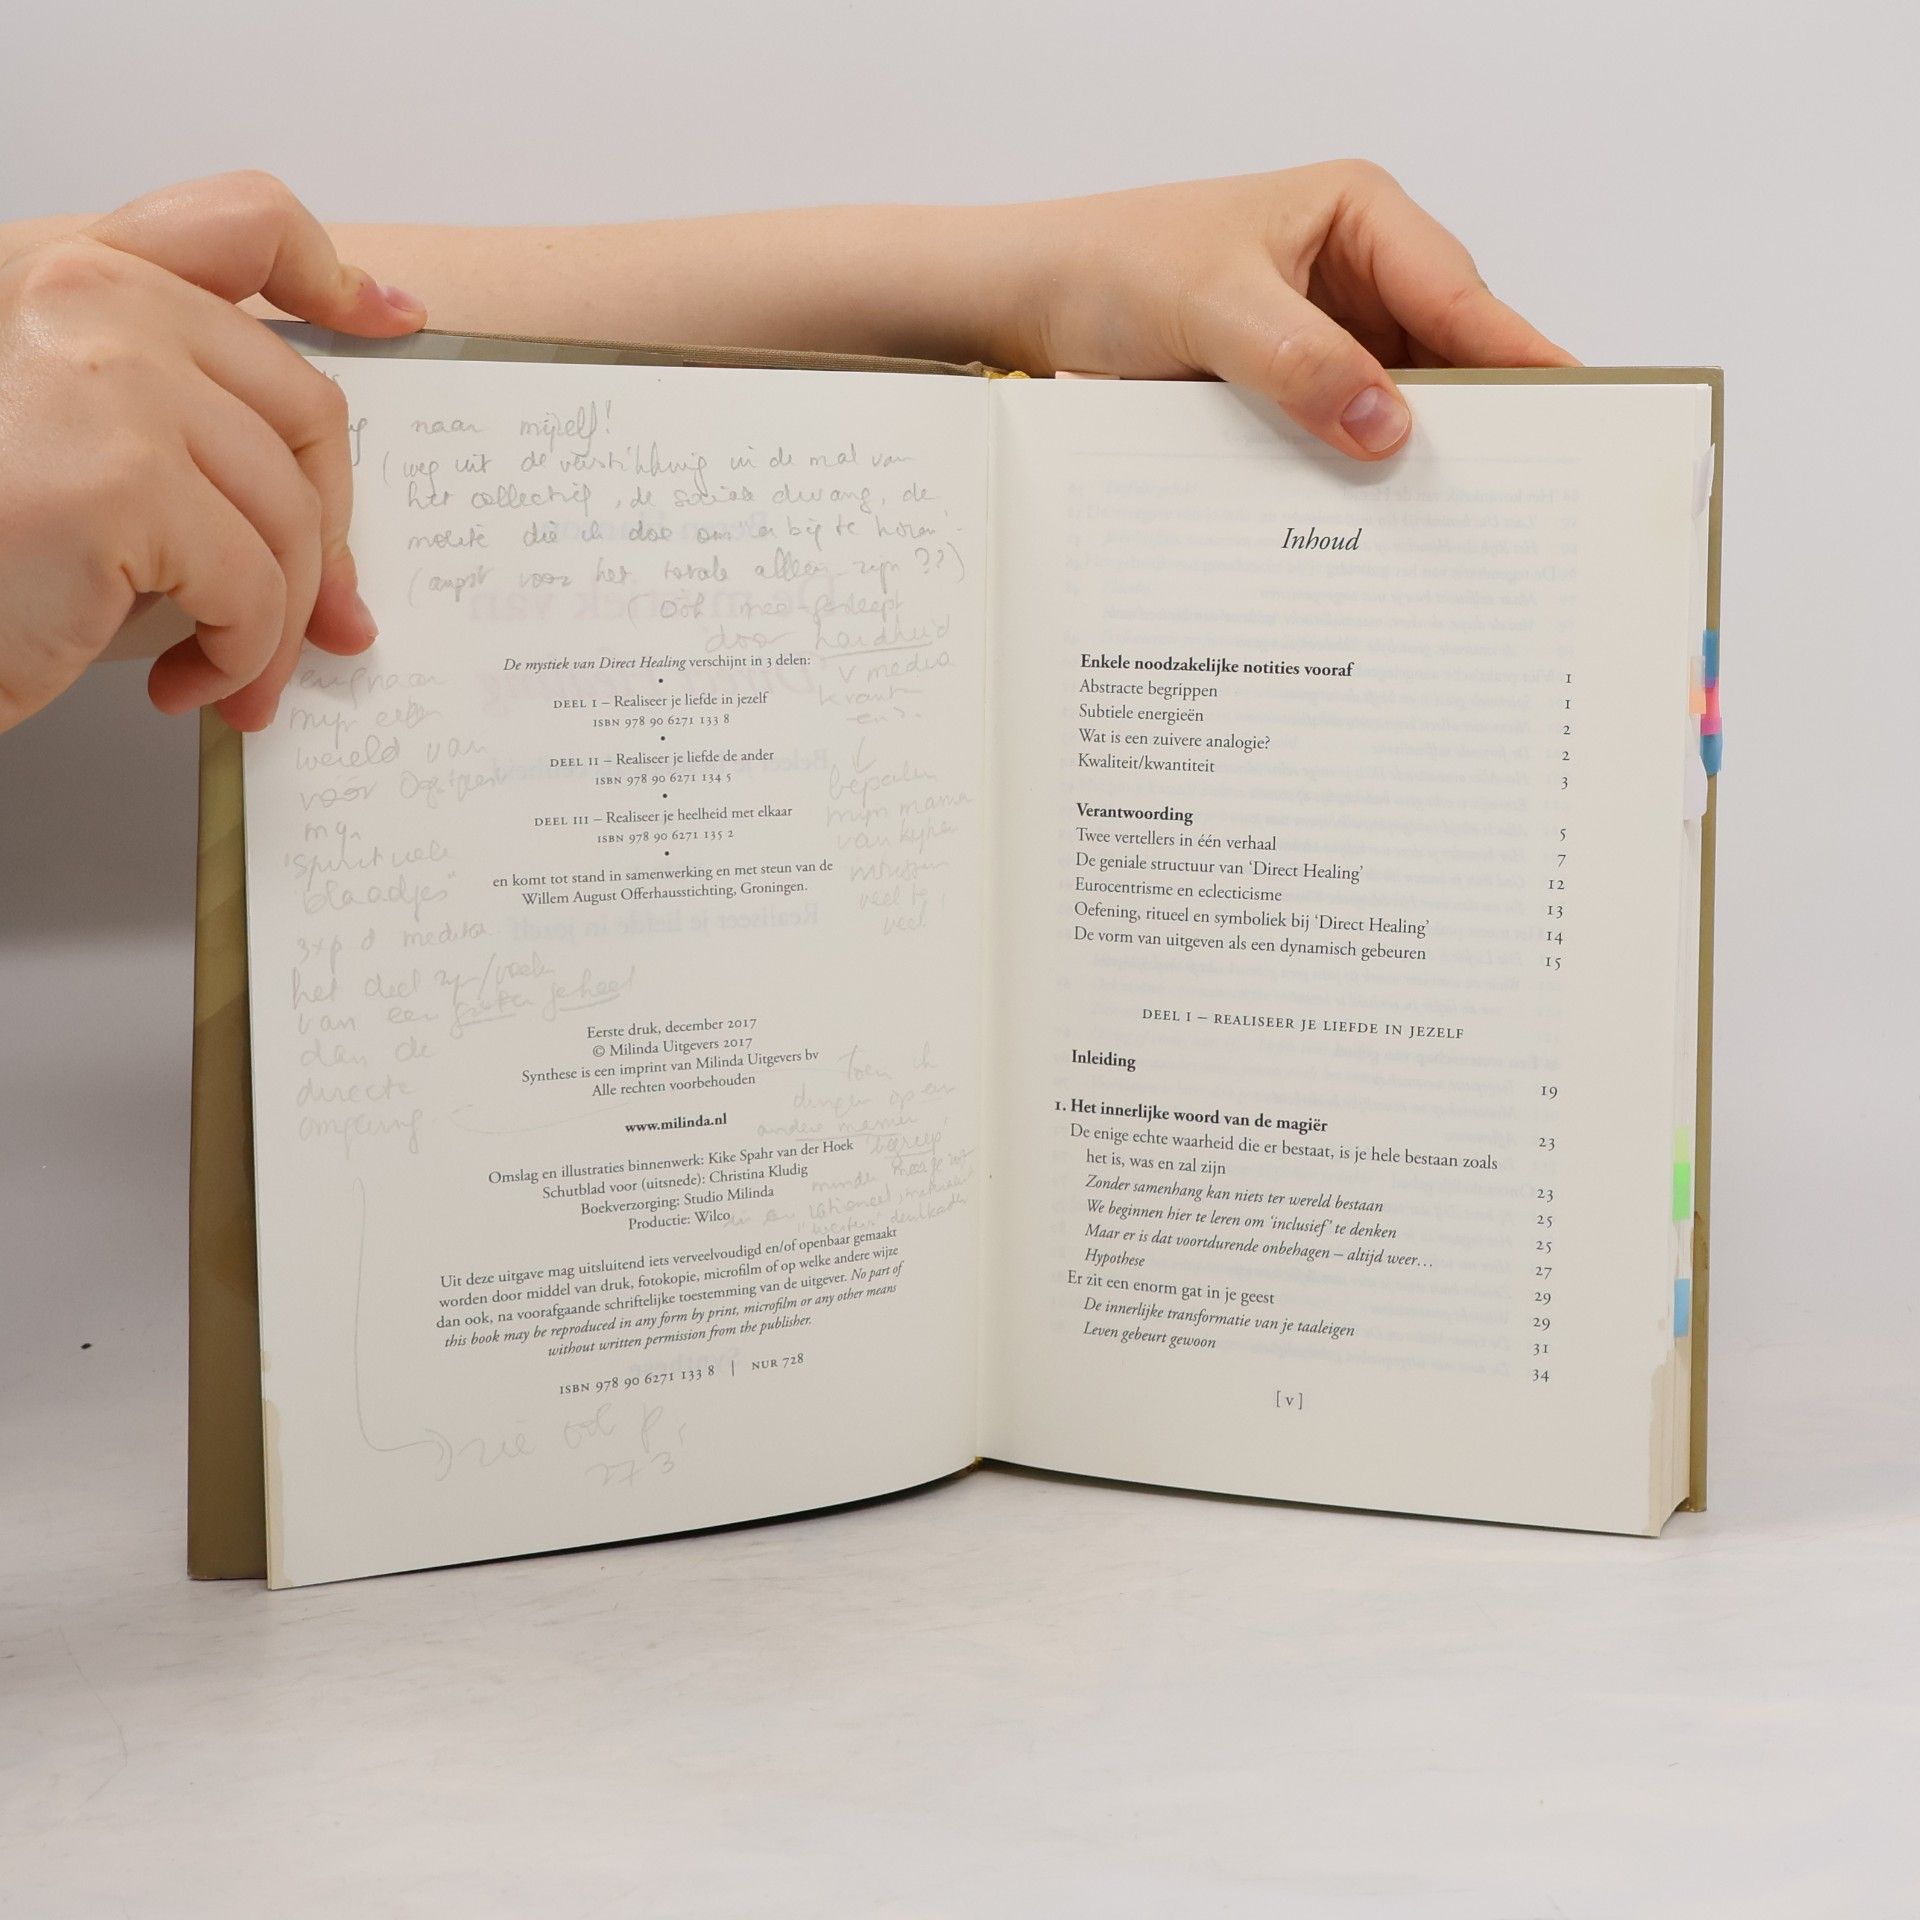 naar mijzelf!
(weg uit de verstikking in de mal van
het collectief, de sociale dwang, de
moeite die ik doe om er bij te horen
(angst voor het totale alleen-zijn ??)
(Ook mee-gesleept
door hardheid
v media
De mystiek van Direct Healing verschijnt in 3 delen:
•
DEEL I – Realiseer je liefde in jezelf
ISBN 978 90 6271 133 8
•
DEEL II – Realiseer je liefde de ander
ISBN 978 90 6271 134 5
•
DEEL III – Realiseer je heelheid met elkaar
ISBN 978 90 6271 135 2
•
en komt tot stand in samenwerking en met steun van de
Willem August Offerhausstichting, Groningen.
mijn eigen
wereld van
vóór
"Spirituele
blaadjes"
3xp d
het deel zijn/voelen
van een groter geheel
dan de
directe
omgeving
bepalen
mijn mama
van kijken
veel te
veel
Eerste druk, december 2017
© Milinda Uitgevers 2017
Synthese is een imprint van Milinda Uitgevers bv
Alle rechten voorbehouden
www.milinda.nl
toen ik
dingen op een
andere manier
Omslag en illustraties binnenwerk: Kike Spahr van der Hoek
Schutblad voor (uitsnede): Christina Kludig
Boekverzorging: Studio Milinda
Productie: Wilco
Uit deze uitgave mag uitsluitend iets verveelvoudigd en/of openbaar gemaakt
worden door middel van druk, fotokopie, microfilm of op welke andere wijze
dan ook, na voorafgaande schriftelijke toestemming van de uitgever. No part of
this book may be reproduced in any form by print, microfilm or any other means
without written permission from the publisher.
ISBN 978 90 6271 133 8 | NUR 728
zie ook p.
273
Inhoud
Enkele noodzakelijke notities vooraf 1
Abstracte begrippen 1
Subtiele energieën 2
Wat is een zuivere analogie? 2
Kwaliteit/kwantiteit 3
Verantwoording 5
Twee vertellers in één verhaal 7
De geniale structuur van ‘Direct Healing’ 12
Eurocentrisme en eclecticisme 13
Oefening, ritueel en symboliek bij ‘Direct Healing’ 14
De vorm van uitgeven als een dynamisch gebeuren 15
DEEL I – REALISEER JE LIEFDE IN JEZELF
Inleiding 19
1. Het innerlijke woord van de magiër 23
De enige echte waarheid die er bestaat, is je hele bestaan zoals
het is, was en zal zijn 23
Zonder samenhang kan niets ter wereld bestaan 25
We beginnen hier te leren om ‘inclusief’ te denken 25
Maar er is dat voortdurende onbehagen – altijd weer… 27
Hypothese 29
Er zit een enorm gat in je geest 29
De innerlijke transformatie van je taaleigen 31
Leven gebeurt gewoon 34
[ v ]